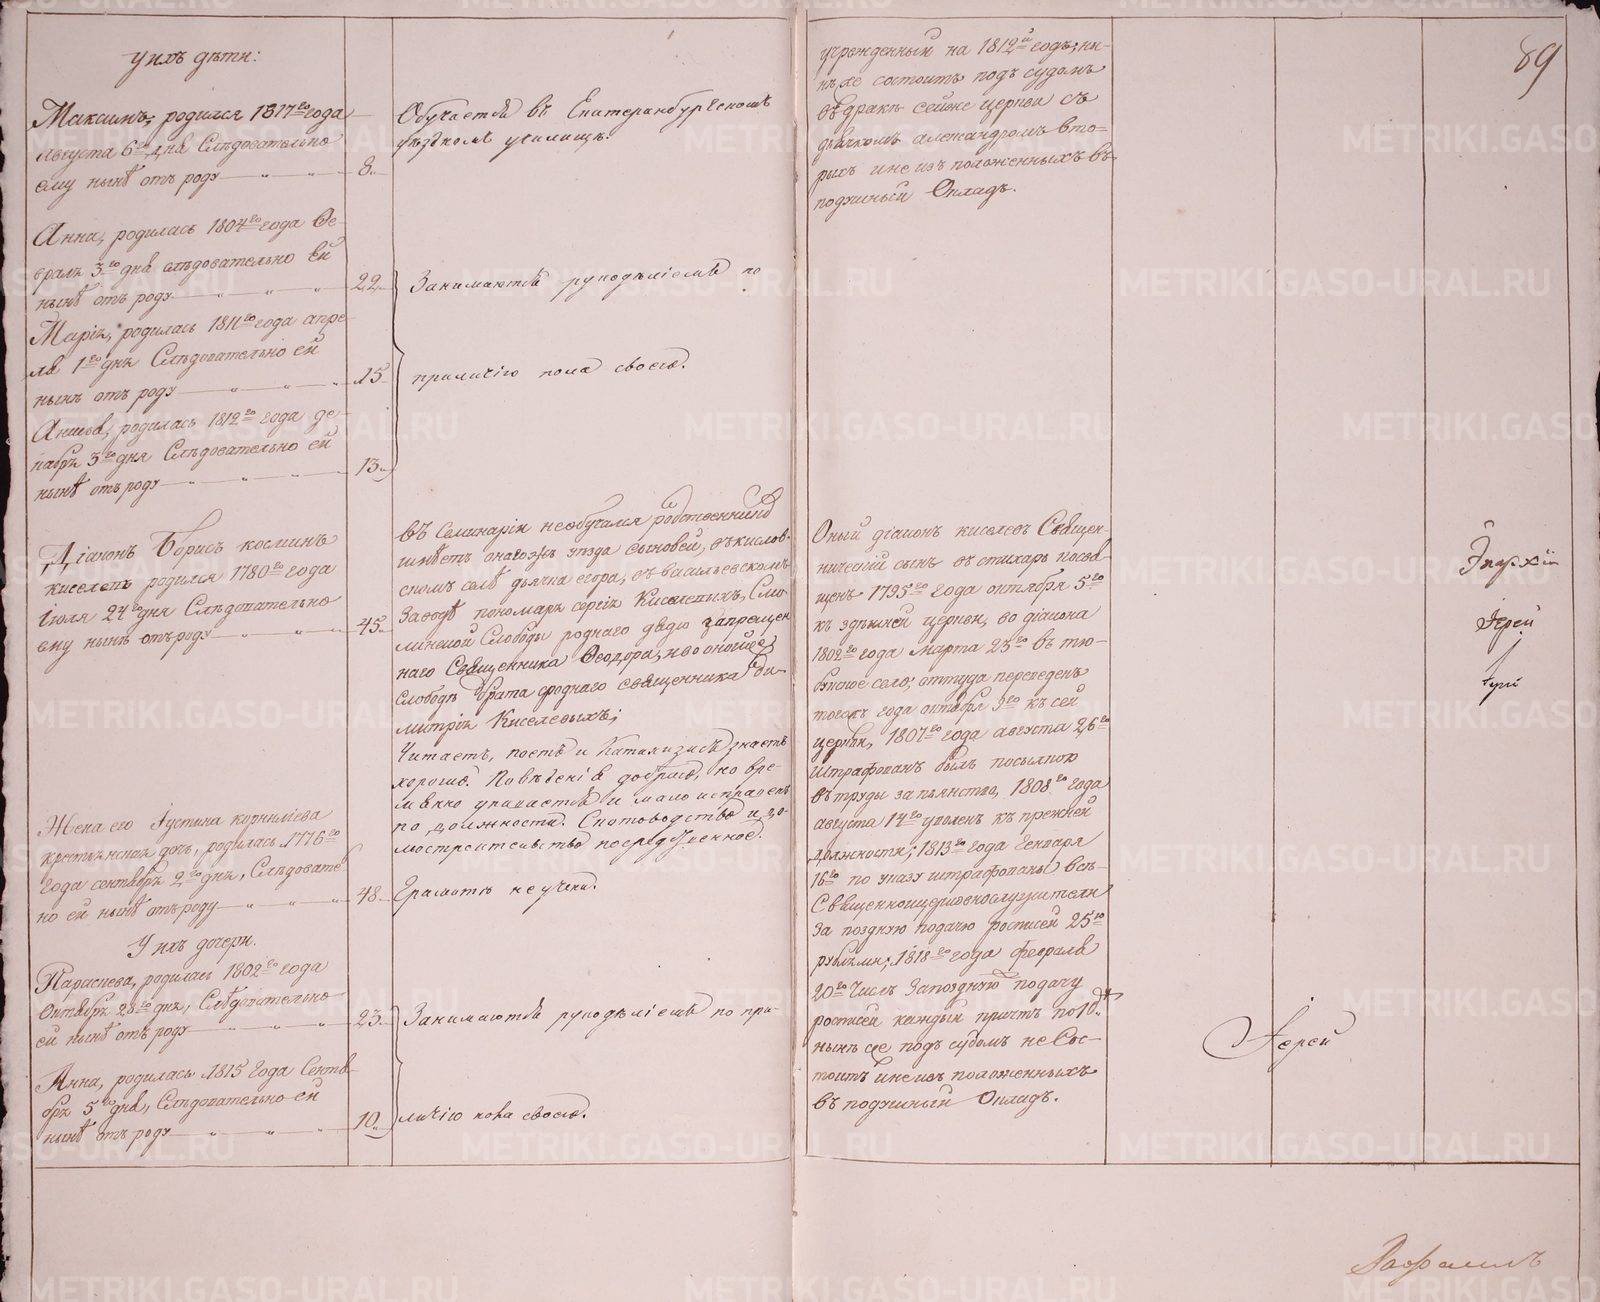 у нихъ дѣти:
Максимъ, родился 1817го года
Августа 6го дня Слѣдовательно
ему нынѣ отъ роду
8.
Обучается въ Екатеринбургскомъ
уѣздномъ училищѣ.
Анна, родилась 1804го года Фе-
враля 3го дня слѣдовательно ей
нынѣ отъ роду
22.
Занимаются рукодѣліемъ по
Марія, родилась 1811го года апре-
ля 1го дня Слѣдовательно ей
нынѣ отъ роду
15.
приличію пола своего.
родилась 1812го года де-
кабря 3го дня Слѣдовательно ей
нынѣ отъ роду
13.
Діаконъ Борисъ косминъ
киселевъ родился 1780го года
Іюля 24го дня Слѣдовательно
ему нынѣ отъ роду
45.
въ Семинаріи необучался родственниковъ
имѣетъ онагожъ уѣзда сыновей, въ кислов-
скомъ селѣ дьячка егора, въ васильевскомъ
Заводѣ пономаря сергія Киселевыхъ,
Слободы роднаго дядю запрещен
наго Священника Феодора, и во оной же
Слободѣ брата сроднаго священника Ди-
митрія Киселевыхъ;
Читаетъ, поетъ и Катихизисъ знаетъ
хорошо. Поведенія добраго, но вре-
менно упивается и мало исправенъ
по должности. Скотоводство и до-
мостроительство посредственное.
Жена его Іустина корнилiева
крестьянская дочь, родилась 1776го
года сентября 2го дня, Слѣдовате
но ей нынѣ отъ роду
48.
Грамотѣ не учена.
У нихъ дочери.
Параскева, родилась 1802го года
Октября 28го дня, Слѣдовательно
ей нынѣ отъ роду
23.
Занимаются рукодѣліемъ по при-
Анна, родилась 1815 года Сентя-
бря 5го дня, Слѣдовательно ей
нынѣ отъ роду
10.
личію пола своего.
учрежденный на 1812й годъ; ны-
нѣ же состоитъ подъ судомъ
о дракѣ сей же церкви съ
дьячкомъ александромъ вто-
рымъ и не изъ положенныхъ въ
подушный Окладъ.
89
Оный діаконъ киселевъ Священ-
ническій сынъ въ стихарь посвя-
щенъ 1795го года октября 5го
къ здѣшней церкви, во діакона
1802го года марта 25го въ тю-
букское село; оттуда переведенъ
тогожъ года октября 9го къ сей
церкви, 1807го года августа 26го
Штрафованъ былъ посылкою
въ труды за пьянство, 1808го года
августа 14го уволенъ къ прежней
должности; 1813го года Генваря
16го по указу штрафованы всѣ
Священноцерковнослужители
за позднюю подачу росписей 25ю
рублями; 1818го года февраля
20го числа за позднюю подачу
росписей каждый причтъ по 10.
нынѣ же подъ судомъ не Сос-
тоитъ и не изъ положенныхъ
въ подушный Окладъ.
Іерей
Іерей
METRIKI.GASO-URAL.RU